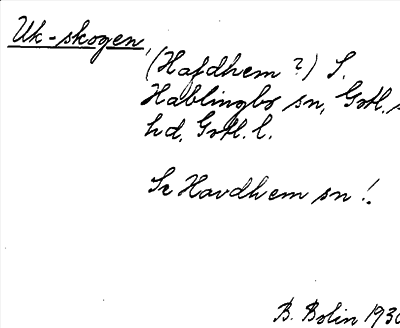 Uk-skogen,
(Hafdhem?) S.
Hablingbo sn, Gotl. s
hd, Gotl. l.
Se Havdhem sn!
B. Bolin 1930